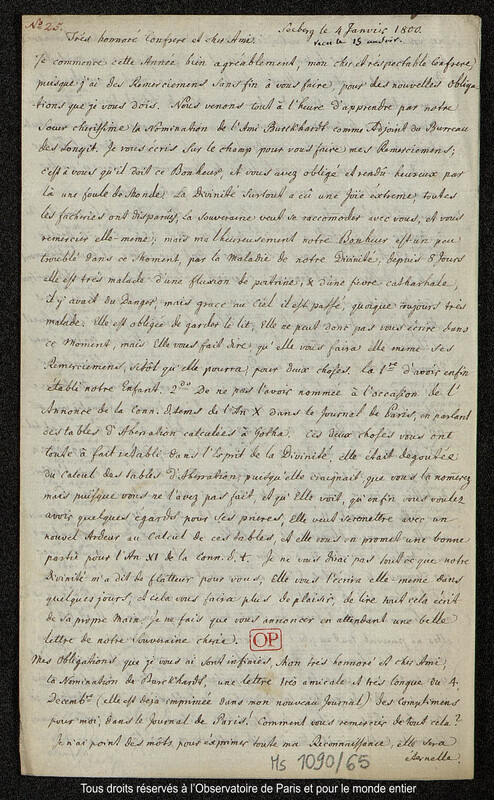 No 25.
Seeberg le 4 Janvier 1800.
recu le 15 
Très honoré Confrere et cher Ami.
Je commence cette Année bien agreablement, mon cher et respectable Confrere,
puisque j'ai des Remercimens sans fin à vous faire, pour des nouvelles obliga-
tions que je vous dois. Nous venons tout à l'heure d'apprendre par notre
Soeur cherissime la Nomination de l'Ami Burckhardt comme Adjoint du Burreau
des Longit. Je vous écris sur le champ pour vous faire mes Remercimens;
c'est à vous qu'il doit ce Bonheur, et vous avez obligé et rendu heureux par
là une foule de Monde; La Divinité Surtout a eû une Joie éxtreme; toutes
les facheries ont disparues, la Souveraine veut se raccomoder avec vous, et vous
remercier elle-meme; mais malheureusement notre Bonheur est un peu
troublé dans ce Moment, par la Maladie de notre Divinité; depuis 8 Jours
elle est très malade d'une flusion de poitrine, & d'une fievre catharhale,
il y avait du Danger, mais grace au Ciel il est passé, quoique toujours très
malade. Elle est obligée de garder le lit, Elle ne peut donc pas vous écrire dans
ce Moment, mais Elle vous fait dire qu'elle vous faira elle meme ses
Remercimens, sitôt qu'elle pourra; pour deux choses. La 1re d'avoir enfin
établi notre Enfant. 2do De ne pas l'avoir nommée à l'occasion de l'
Annonce de la Conn. d. tems de l'An X dans le Journal de Paris, en parlant
des tables d'Aberration calculées à Gotha. Ces deux choses vous ont
toute à fait retabli dans l'Esprit de la Divinité, elle était degoutée
du Calcul des tables d'Aberration, puisqu'elle craignait que vous la nomerez
mais puisque vous ne l'avez pas fait, et qu'Elle voit, qu'enfin vous voulez
avoir quelques égards pour ses prieres, Elle veut se remettre avec un
nouvel Ardeur au Calcul de ces tables, et elle vous en promet une bonne
partie pour l'An XI de la Conn. d. t. Je ne vous dirai pas tout ce que notre
Divinité m'a dit de flatteur pour vous, Elle vous l'écrira elle-meme dans
quelques jours, et cela vous faira plus de plaisir, de lire tout cela écrit
de sa propre Main; je ne fais que vous annoncer en attendant une belle
lettre de notre Souveraine cherie. OP
Mes obligations que je vous ai sont infinies, Mon très honoré et cher Ami;
la Nomination de Burckhardt, une lettre très amicale et très longue du 4.
Decembr (elle est deja imprimée dans mon nouveau Journal) des Complimens
pour moi, dans le Journal de Paris! Comment vous remercier de tout cela?
Je n'ai point des môts pour éxprimer toute ma Reconnaissance, elle sera
éternelle.
Ms 1090/65
Tous droits réservés à l'Observatoire de Paris et pour le monde entier